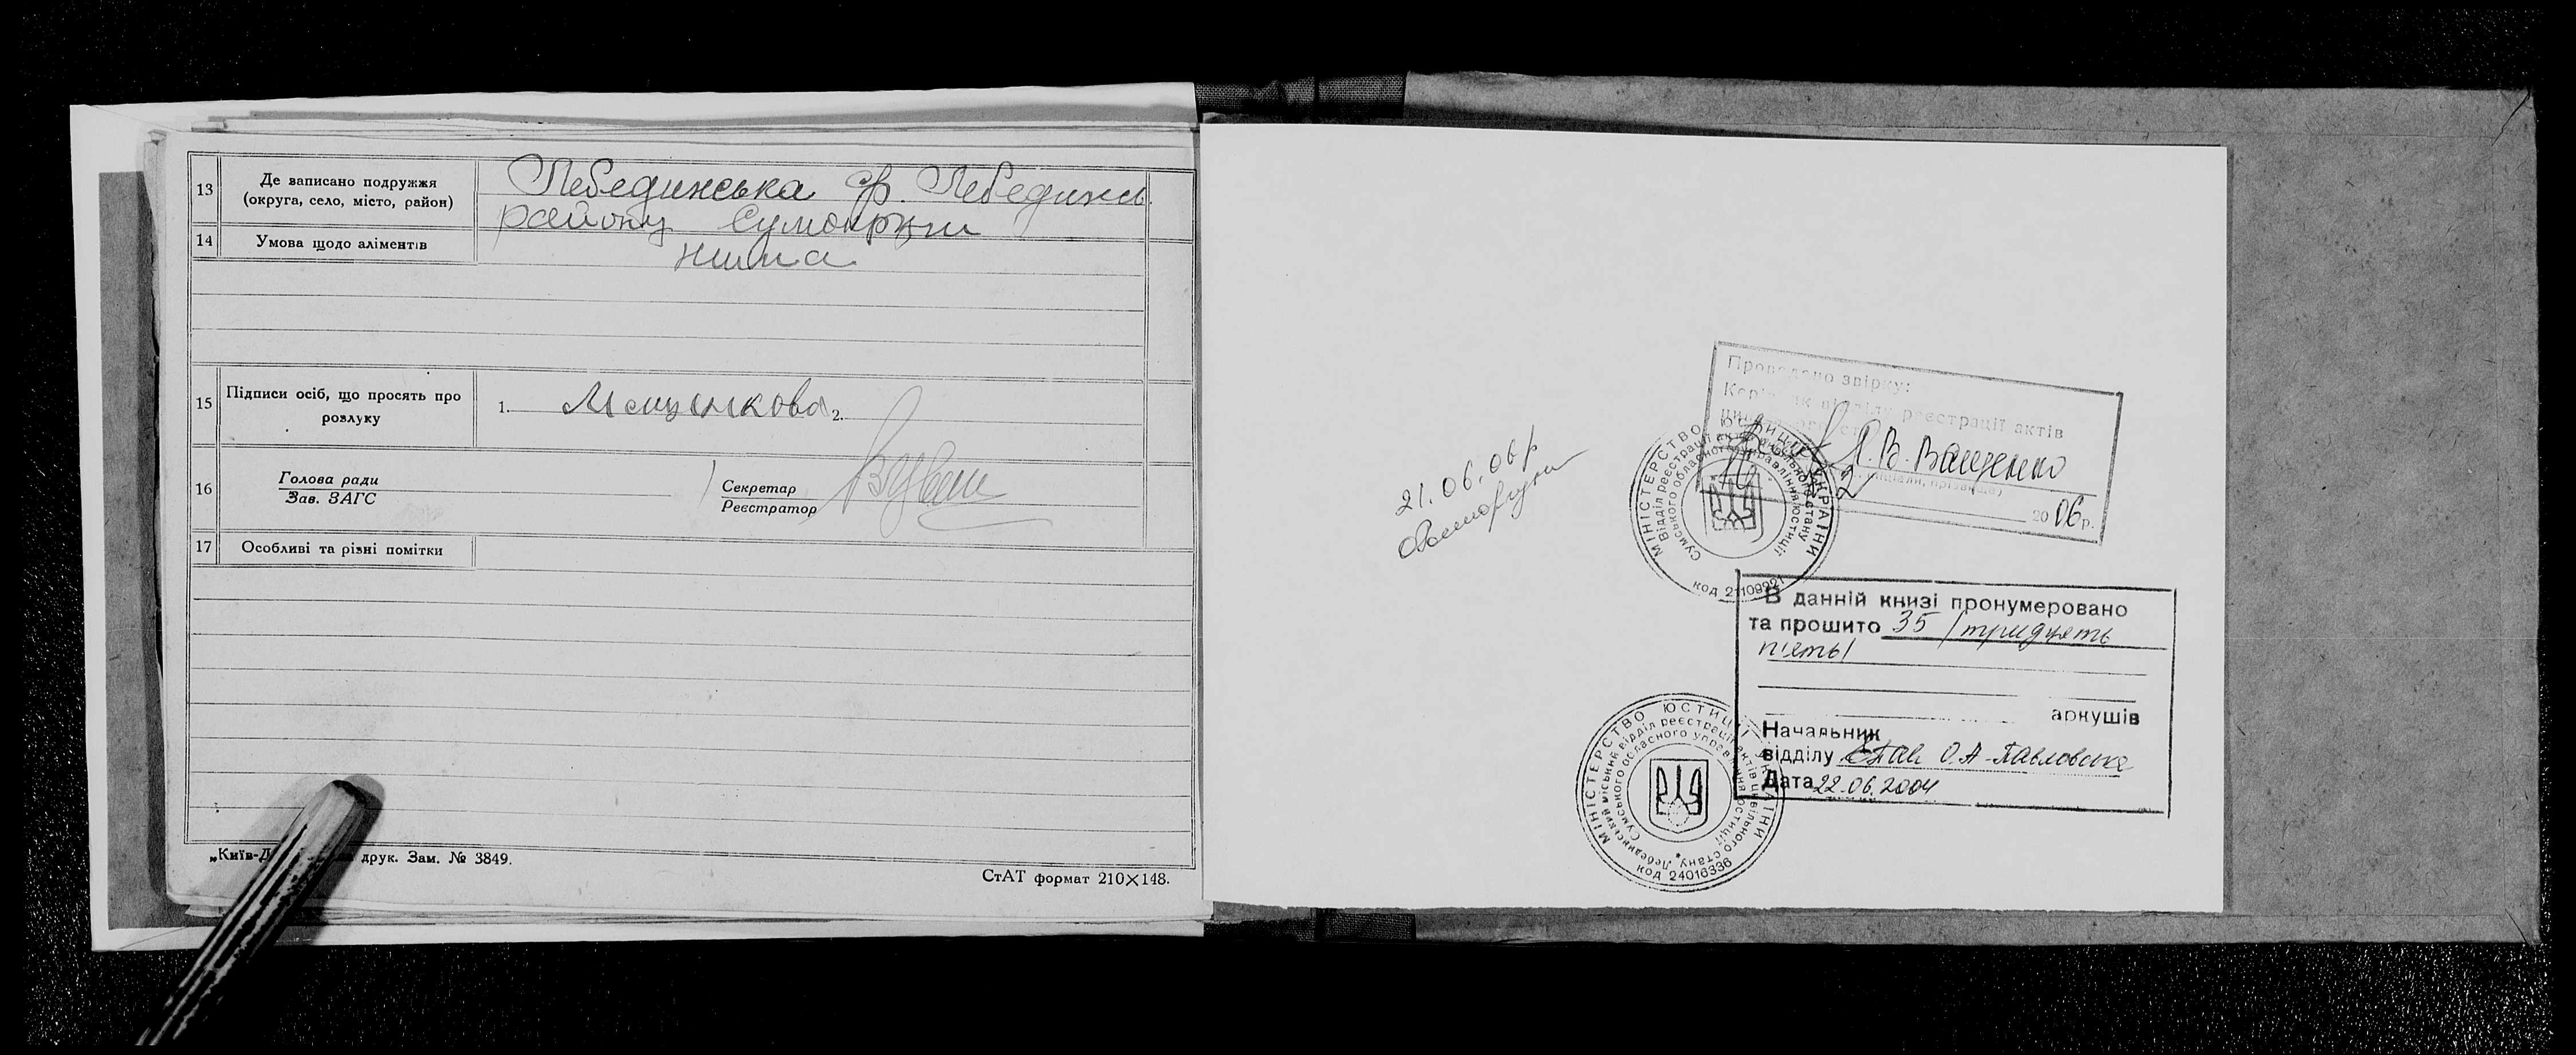 13 Де записано подружжя (округа, село, місто, район)
Лебединська ф. Лебединсь.
району Сумокруги
14 Умова щодо аліментів
нима
15 Підписи осіб, що просять про розлуку
1. Мощенкова 2.
16 Голова ради
Зав. ЗАГС
Секретар
Реєстратор
17 Особливі та різні помітки
„Київ-Д друк. Зам. № 3849.
СтАТ формат 210×148.
21.06.06р
Проведено звірку:
Керівник відділу реєстрації актів
Л.В. Ващенко
(ініціали, прізвище)
2006р.
МІНІСТЕРСТВО ЮСТИЦІЇ УКРАЇНИ
Відділ реєстрації актів цивільного стану
Сумського обласного управління юстиції
код 21109921
В данній книзі пронумеровано
та прошито 35 /тридцять
п'ять/
аркушів
Начальник
відділу О.А. Павловська
Дата 22.06.2004
МІНІСТЕРСТВО ЮСТИЦІЇ УКРАЇНИ
Лебединський міський відділ реєстрації актів цивільного стану
Сумського обласного управління юстиції
код 24016336